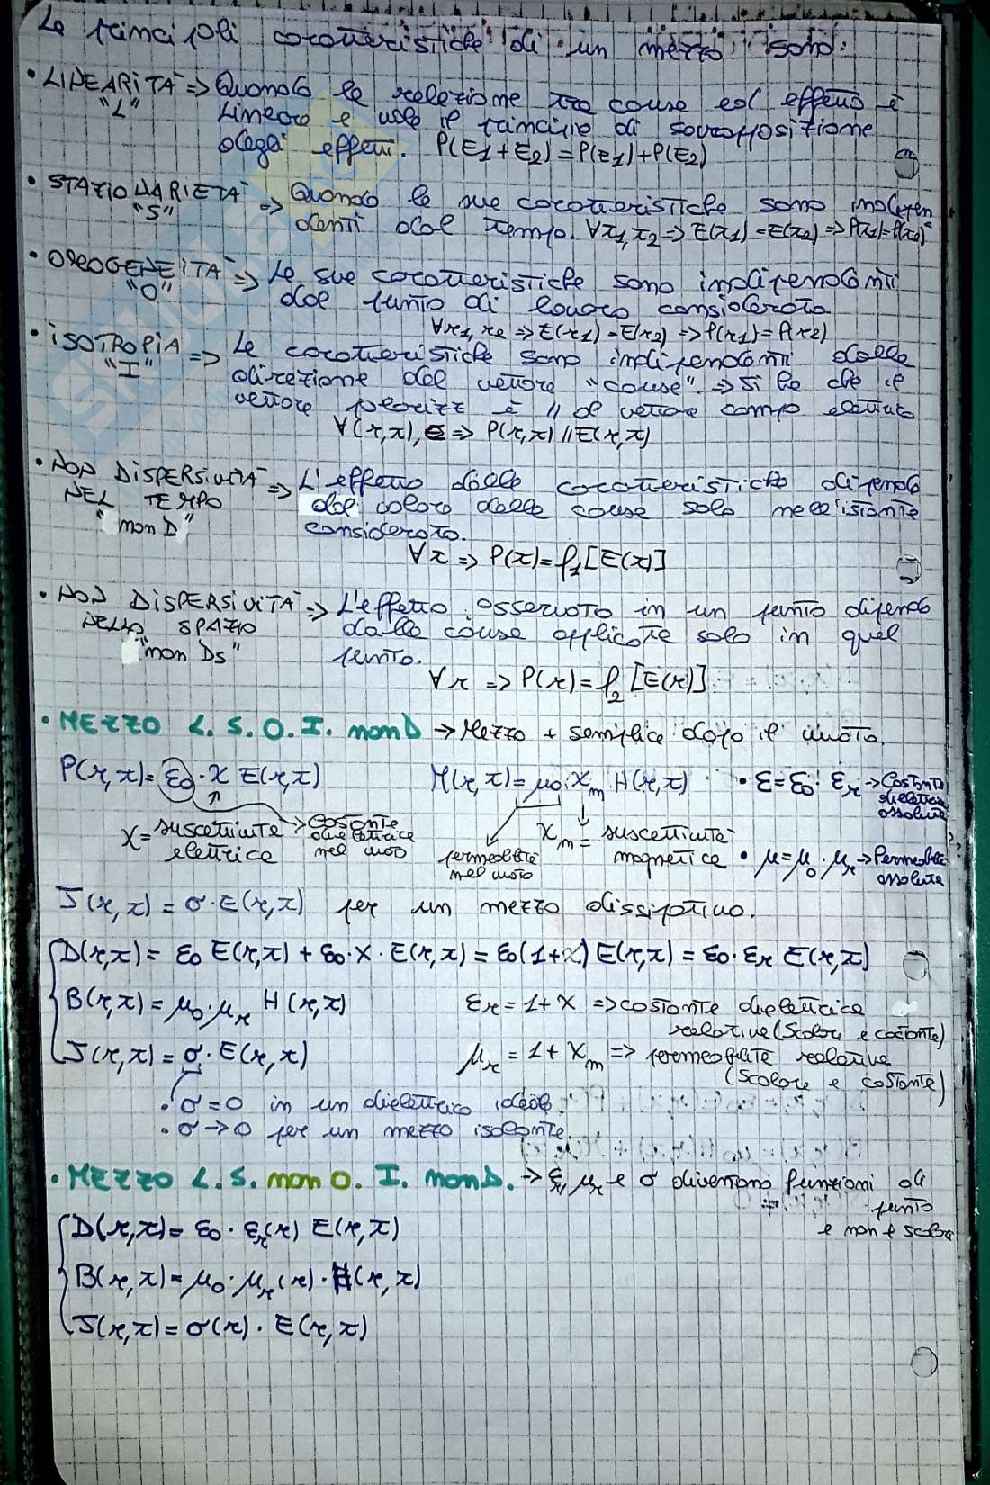 Le principali caratteristiche di un mezzo sono:
• LINEARITÀ => Quando la relazione tra causa ed effetto è
"L" lineare e vale il principio di sovrapposizione
degli effetti. P(E1+E2)=P(E1)+P(E2)
• STAZIONARIETÀ => Quando le sue caratteristiche sono indipen
"S" denti dal tempo. ∀t1,t2 => E(t1)=E(t2) => P(t1)=P(t2)
• OMOGENEITÀ => Le sue caratteristiche sono indipendenti
"O" dal punto di lavoro considerato
∀r1,r2 => E(r1)=E(r2) => P(r1)=P(r2)
• ISOTROPIA => Le caratteristiche sono indipendenti dalla
"I" direzione del vettore "causa". => si ha che il
vettore polarizz è // al vettore campo elettrico
∀(r,t), => P(r,t)//E(r,t)
• NON DISPERSIVITÀ => L'effetto delle caratteristiche dipende
NEL TEMPO dal valore della causa solo nell'istante
"non D" considerato.
∀t => P(t)=f1[E(t)]
• NON DISPERSIVITÀ => L'effetto osservato in un punto dipende
NELLO SPAZIO dalle cause applicate solo in quel
"non Ds" punto.
∀r => P(r)=f2[E(r)]
• MEZZO L. S. O. I. non D → Mezzo + semplice dopo il vuoto.
P(r,t)=ε0·χ E(r,t) M(r,t)=μ0·χm H(r,t) • ε=ε0·εr → Costante
dielettrica
assoluta
χ=suscettività elettrica → costante dielettrica nel vuoto
permeabilità nel vuoto χm= suscettività magnetica
• μ=μ0·μr → Permeabilità
assoluta
J(r,t)=σ·E(r,t) per un mezzo dissipativo.
D(r,t)= ε0 E(r,t) + ε0·χ·E(r,t)=ε0(1+χ) E(r,t)=ε0·εr E(r,t)
B(r,t)=μ0·μr H(r,t) εr=1+χ => costante dielettrica
relativa (scalare e costante)
J(r,t)=σ·E(r,t) μr=1+χm => permeabilità relativa
(scalare e costante)
• σ=0 in un dielettrico ideale.
• σ→0 per un mezzo isolante.
• MEZZO L. S. non O. I. non D. → εr, μr e σ diventano funzioni di
punto
e non + scalari
D(r,t)=ε0·εr(r) E(r,t)
B(r,t)=μ0·μr(r)·H(r,t)
J(r,t)=σ(r)·E(r,t)